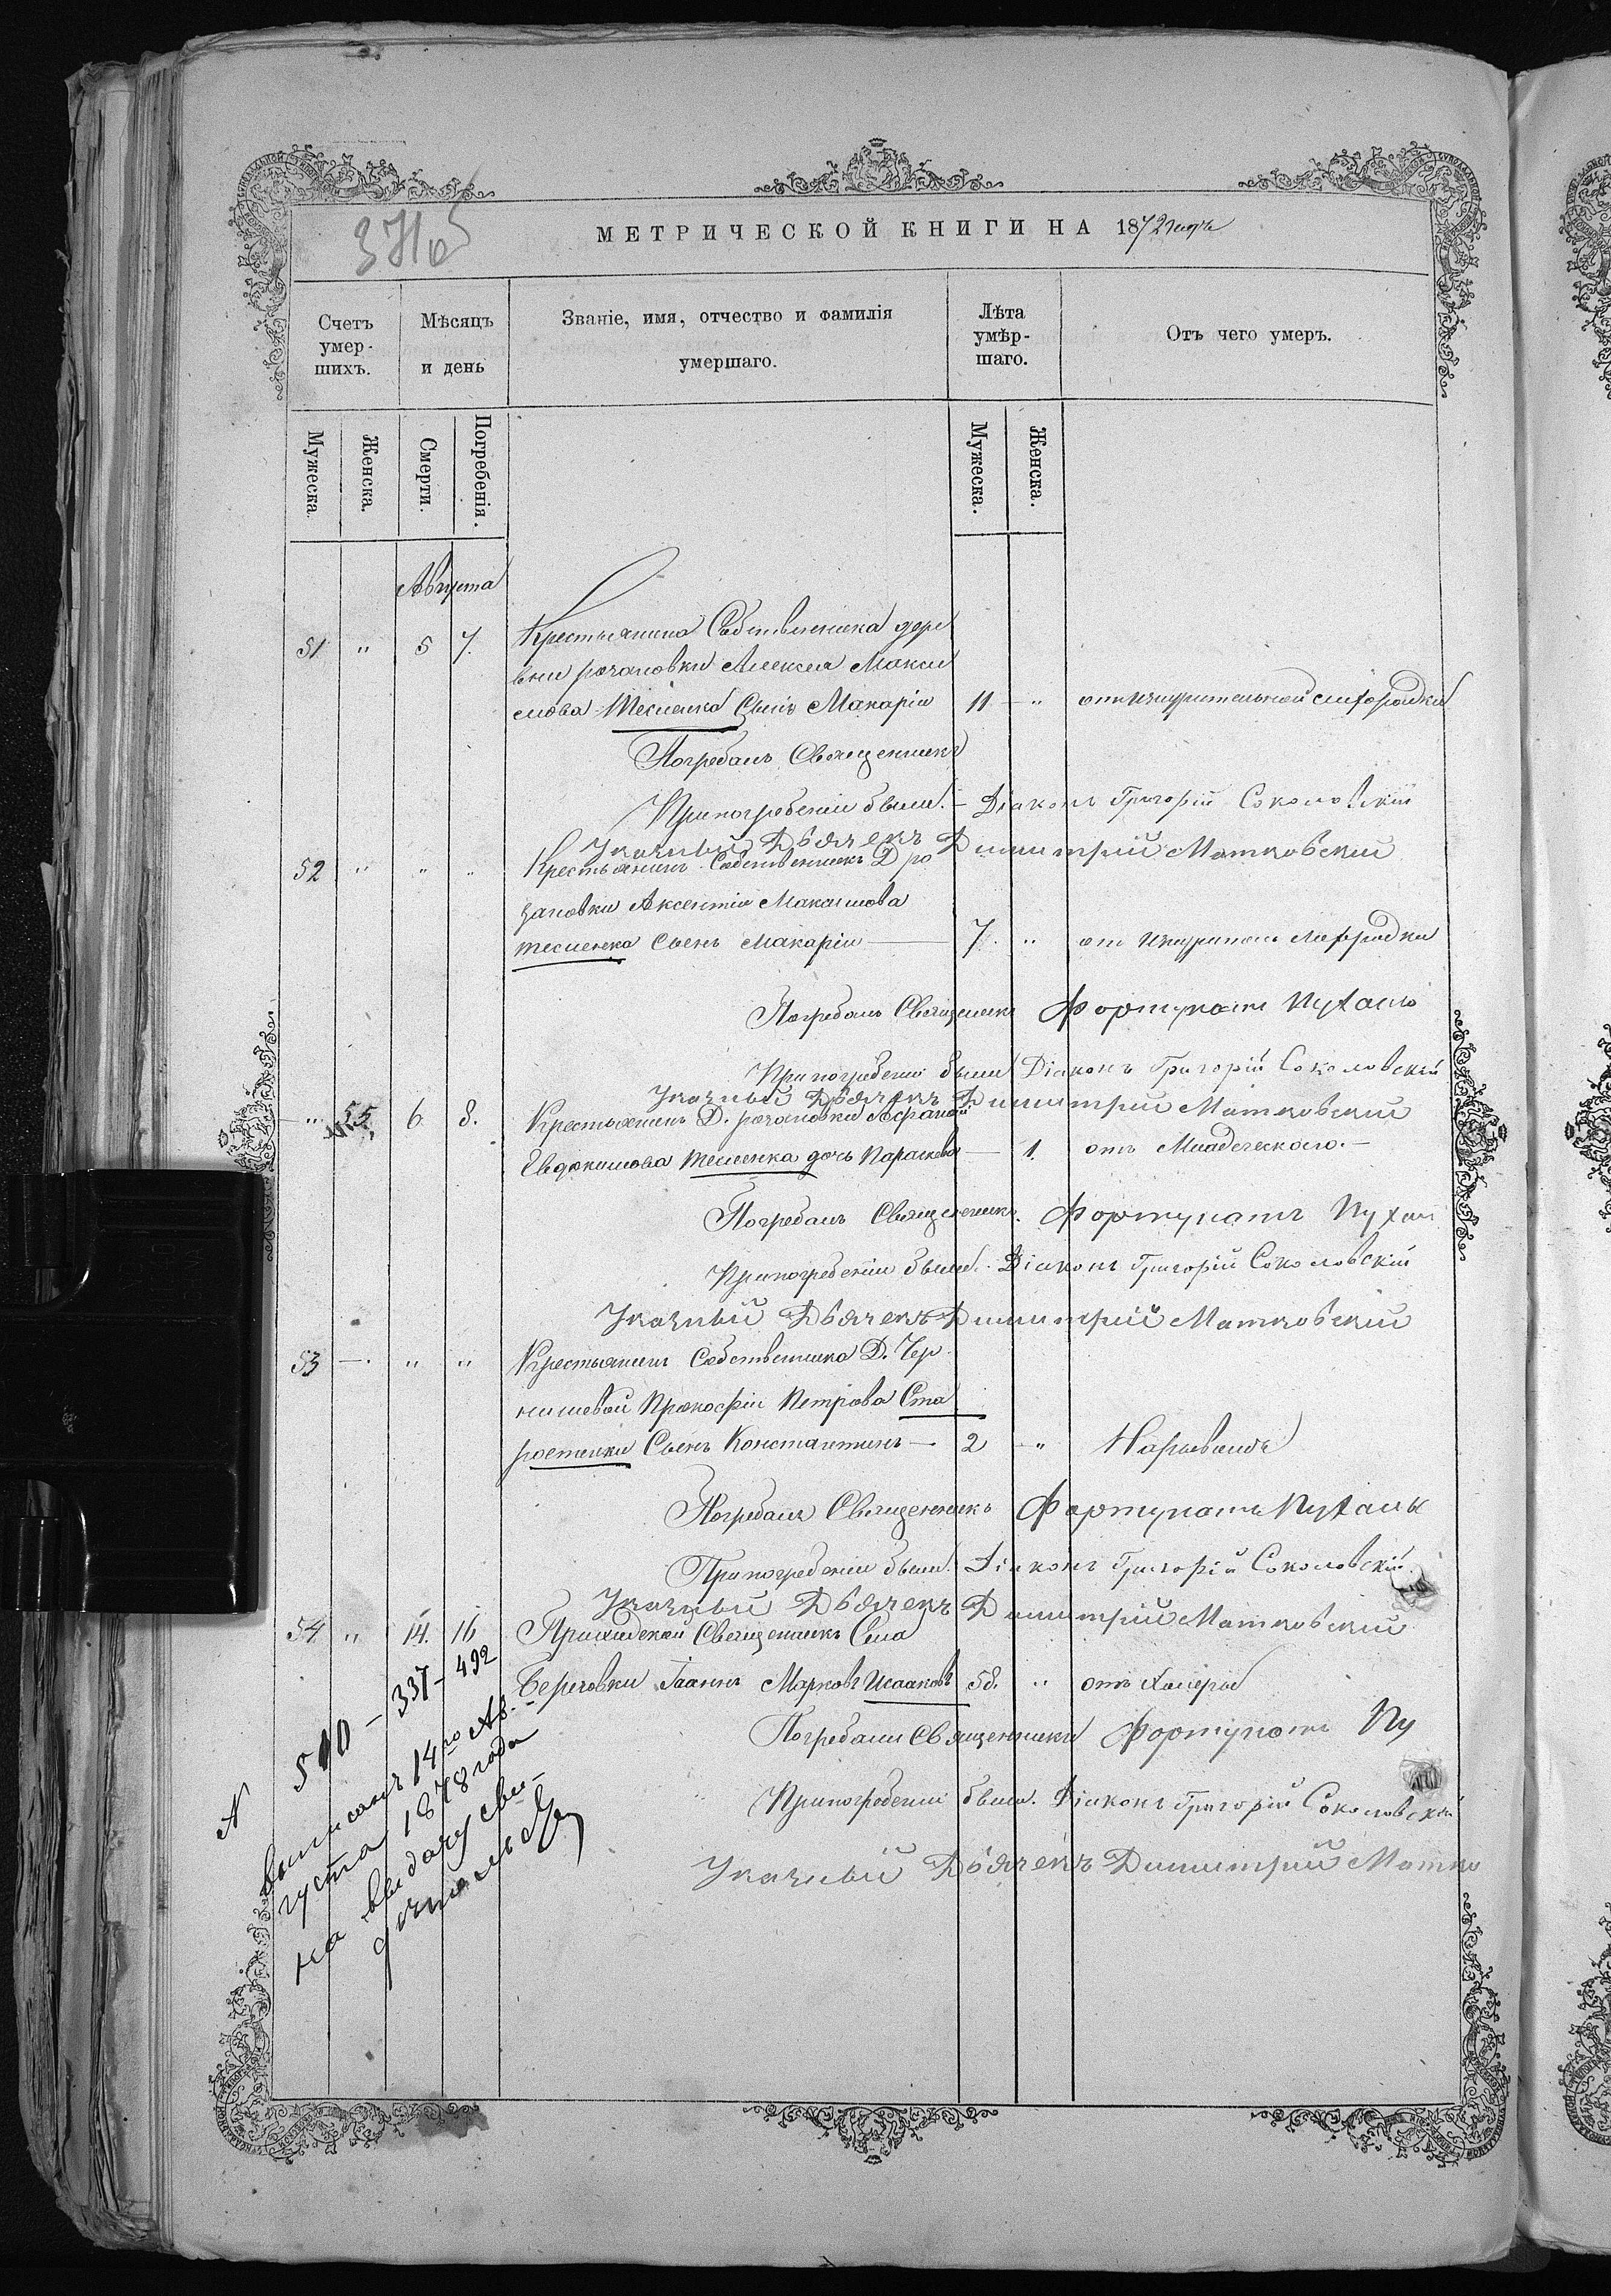 371об
МЕТРИЧЕСКОЙ КНИГИ НА 1872 годъ
Счетъ умер-шихъ.
Мѣсяцъ и день
Званіе, имя, отчество и фамилія умершаго.
Лѣта умѣр-шаго.
Отъ чего умеръ.
Мужеска.
Женска.
Смерти.
Погребенія.
Мужеска.
Женска.
Августа
51 " 5 7. Крестьянина Собственника дере
вни розановки Алексея Макси
мова Тесленка Сынъ Макарій 11 — " отъ изнурительной лихорадки
Погребалъ Священникъ
При погребеніи были. — Діаконъ Григорій Соколовскій
Указный Дьячекъ Димитрій Матковский
52 " " " Крестьянинъ Собственникъ Д ро
зановки Аксентія Максимова
тесленка Сынъ Макарій — 7. " от изнурител лихорадки
Погребалъ Священикъ Фортунатъ Пухаль
При погребеніи были Діаконъ Григорій Соколовскій
Указный Дьячекъ Димитрий Матковский
" 55. 6 8. Крестьянинъ Д. розановки
Евдокимова Тесленка дочь Параскева — 1. отъ Младеческаго. —
Погребалъ Священникъ. Фортунатъ Пухал
При погребеніи были. Діаконъ Григорій Соколовскій
Указный Дьячекъ Димитрій Матковский
53 —. " " Крестьянинъ Собственника Д. Чер
нишевой Прокофій Петрова Ста
ростенки Сынъ Константинъ — 2 — "
Погребалъ Священникъ Фортунатъ Пухаль
При погребеніи были. Діаконъ Григорій Соколовскій.
Указный Дьячекъ Димитрій Матковский
54 " 14. 16 Приходской Священникъ Села
Береговки Іоаннъ Марковъ Исааковъ 58. " отъ Холеры
Погребали Священники Фортунатъ Пу
При погребеніи были. Діаконъ Григорій Соколовскій
Указный Дьячекъ Димитрий Матко
N 510 — 337 — 492
выписанъ 14го Ав-
густа 1878 года
на выдачу сви-